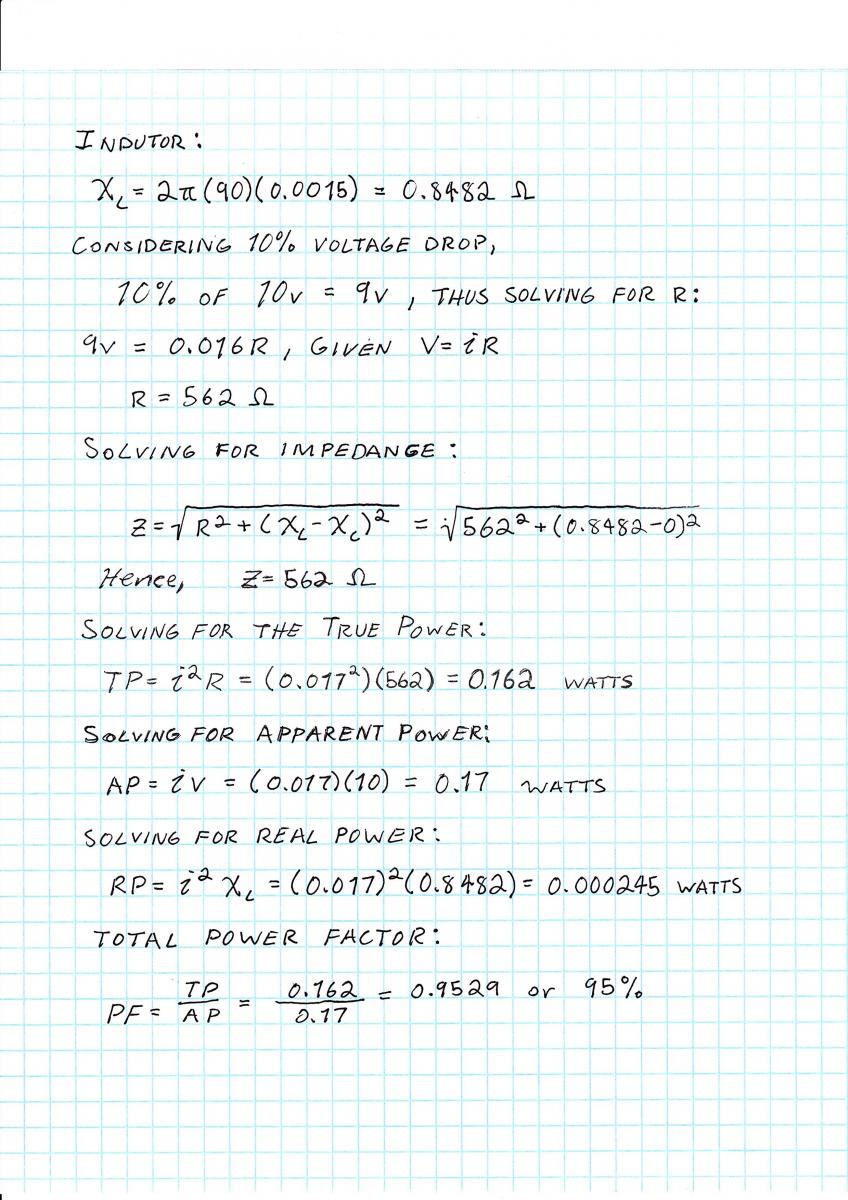 INDUTOR:
X_L = 2π(90)(0.0015) = 0.8482 Ω
CONSIDERING 10% VOLTAGE DROP,
10% OF 10V = 9V, THUS SOLVING FOR R:
9V = 0.016R, GIVEN V= iR
R = 562 Ω
SOLVING FOR IMPEDANGE:
Z = √(R² + (X_L - X_C)²) = √(562² + (0.8482-0)²)
Hence, Z= 562 Ω
SOLVING FOR THE TRUE POWER:
TP= i²R = (0.017²)(562) = 0.162 WATTS
SOLVING FOR APPARENT POWER:
AP = iV = (0.017)(10) = 0.17 WATTS
SOLVING FOR REAL POWER:
RP= i² X_L = (0.017)²(0.8482) = 0.000245 WATTS
TOTAL POWER FACTOR:
PF = TP/AP = 0.162/0.17 = 0.9529 or 95%